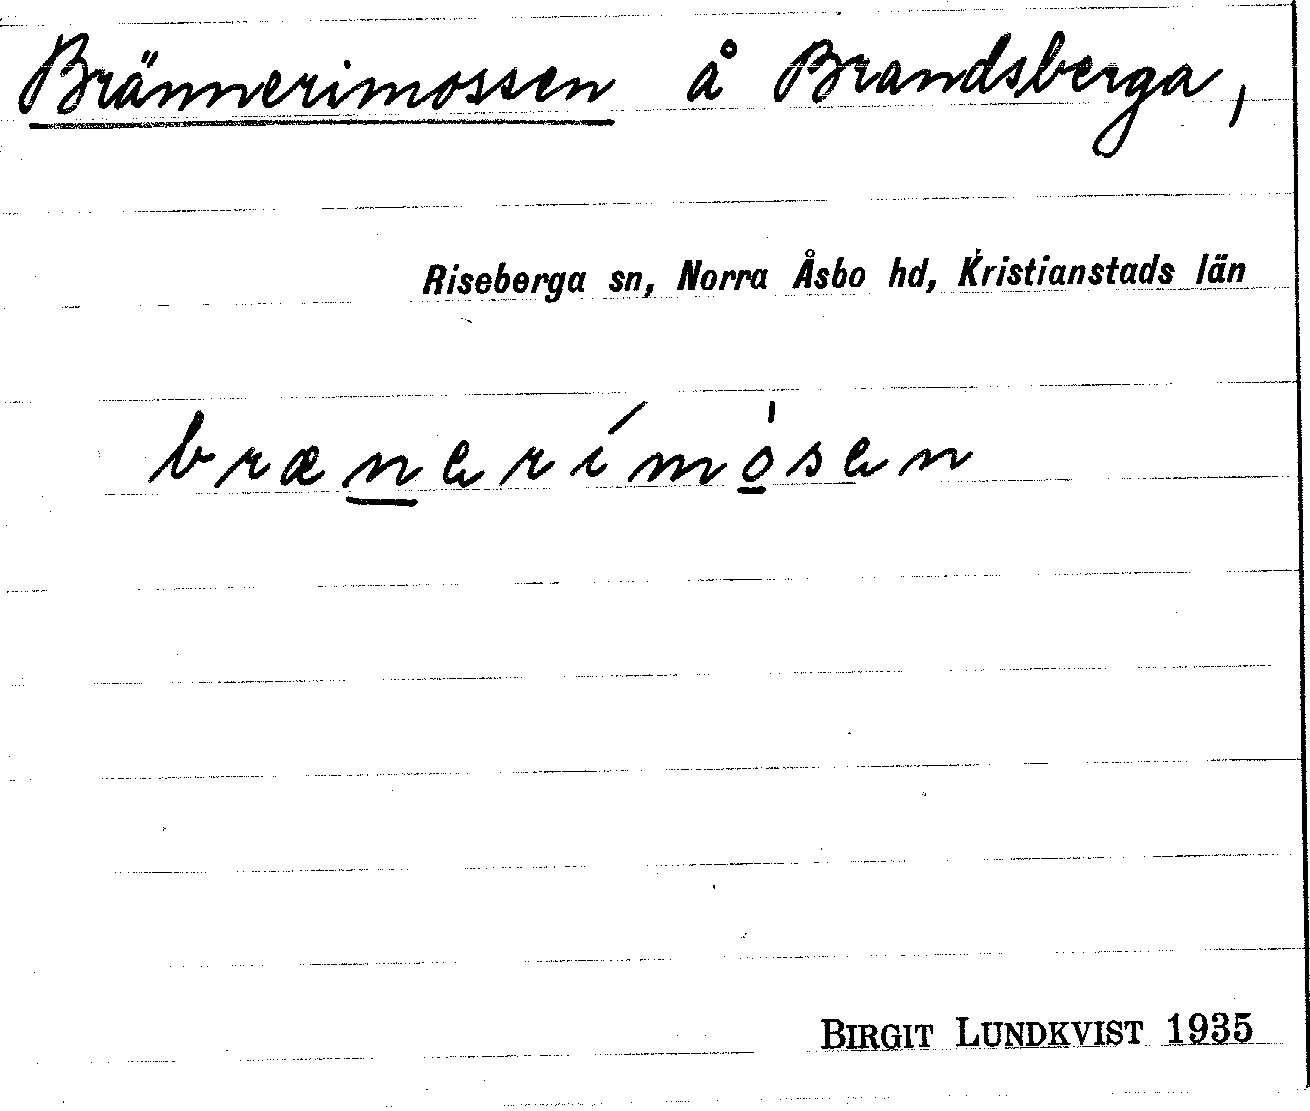 Brännerimossen å Brandsberga,
Riseberga sn, Norra Åsbo hd, Kristianstads län
brænerímósen
BIRGIT LUNDKVIST 1935